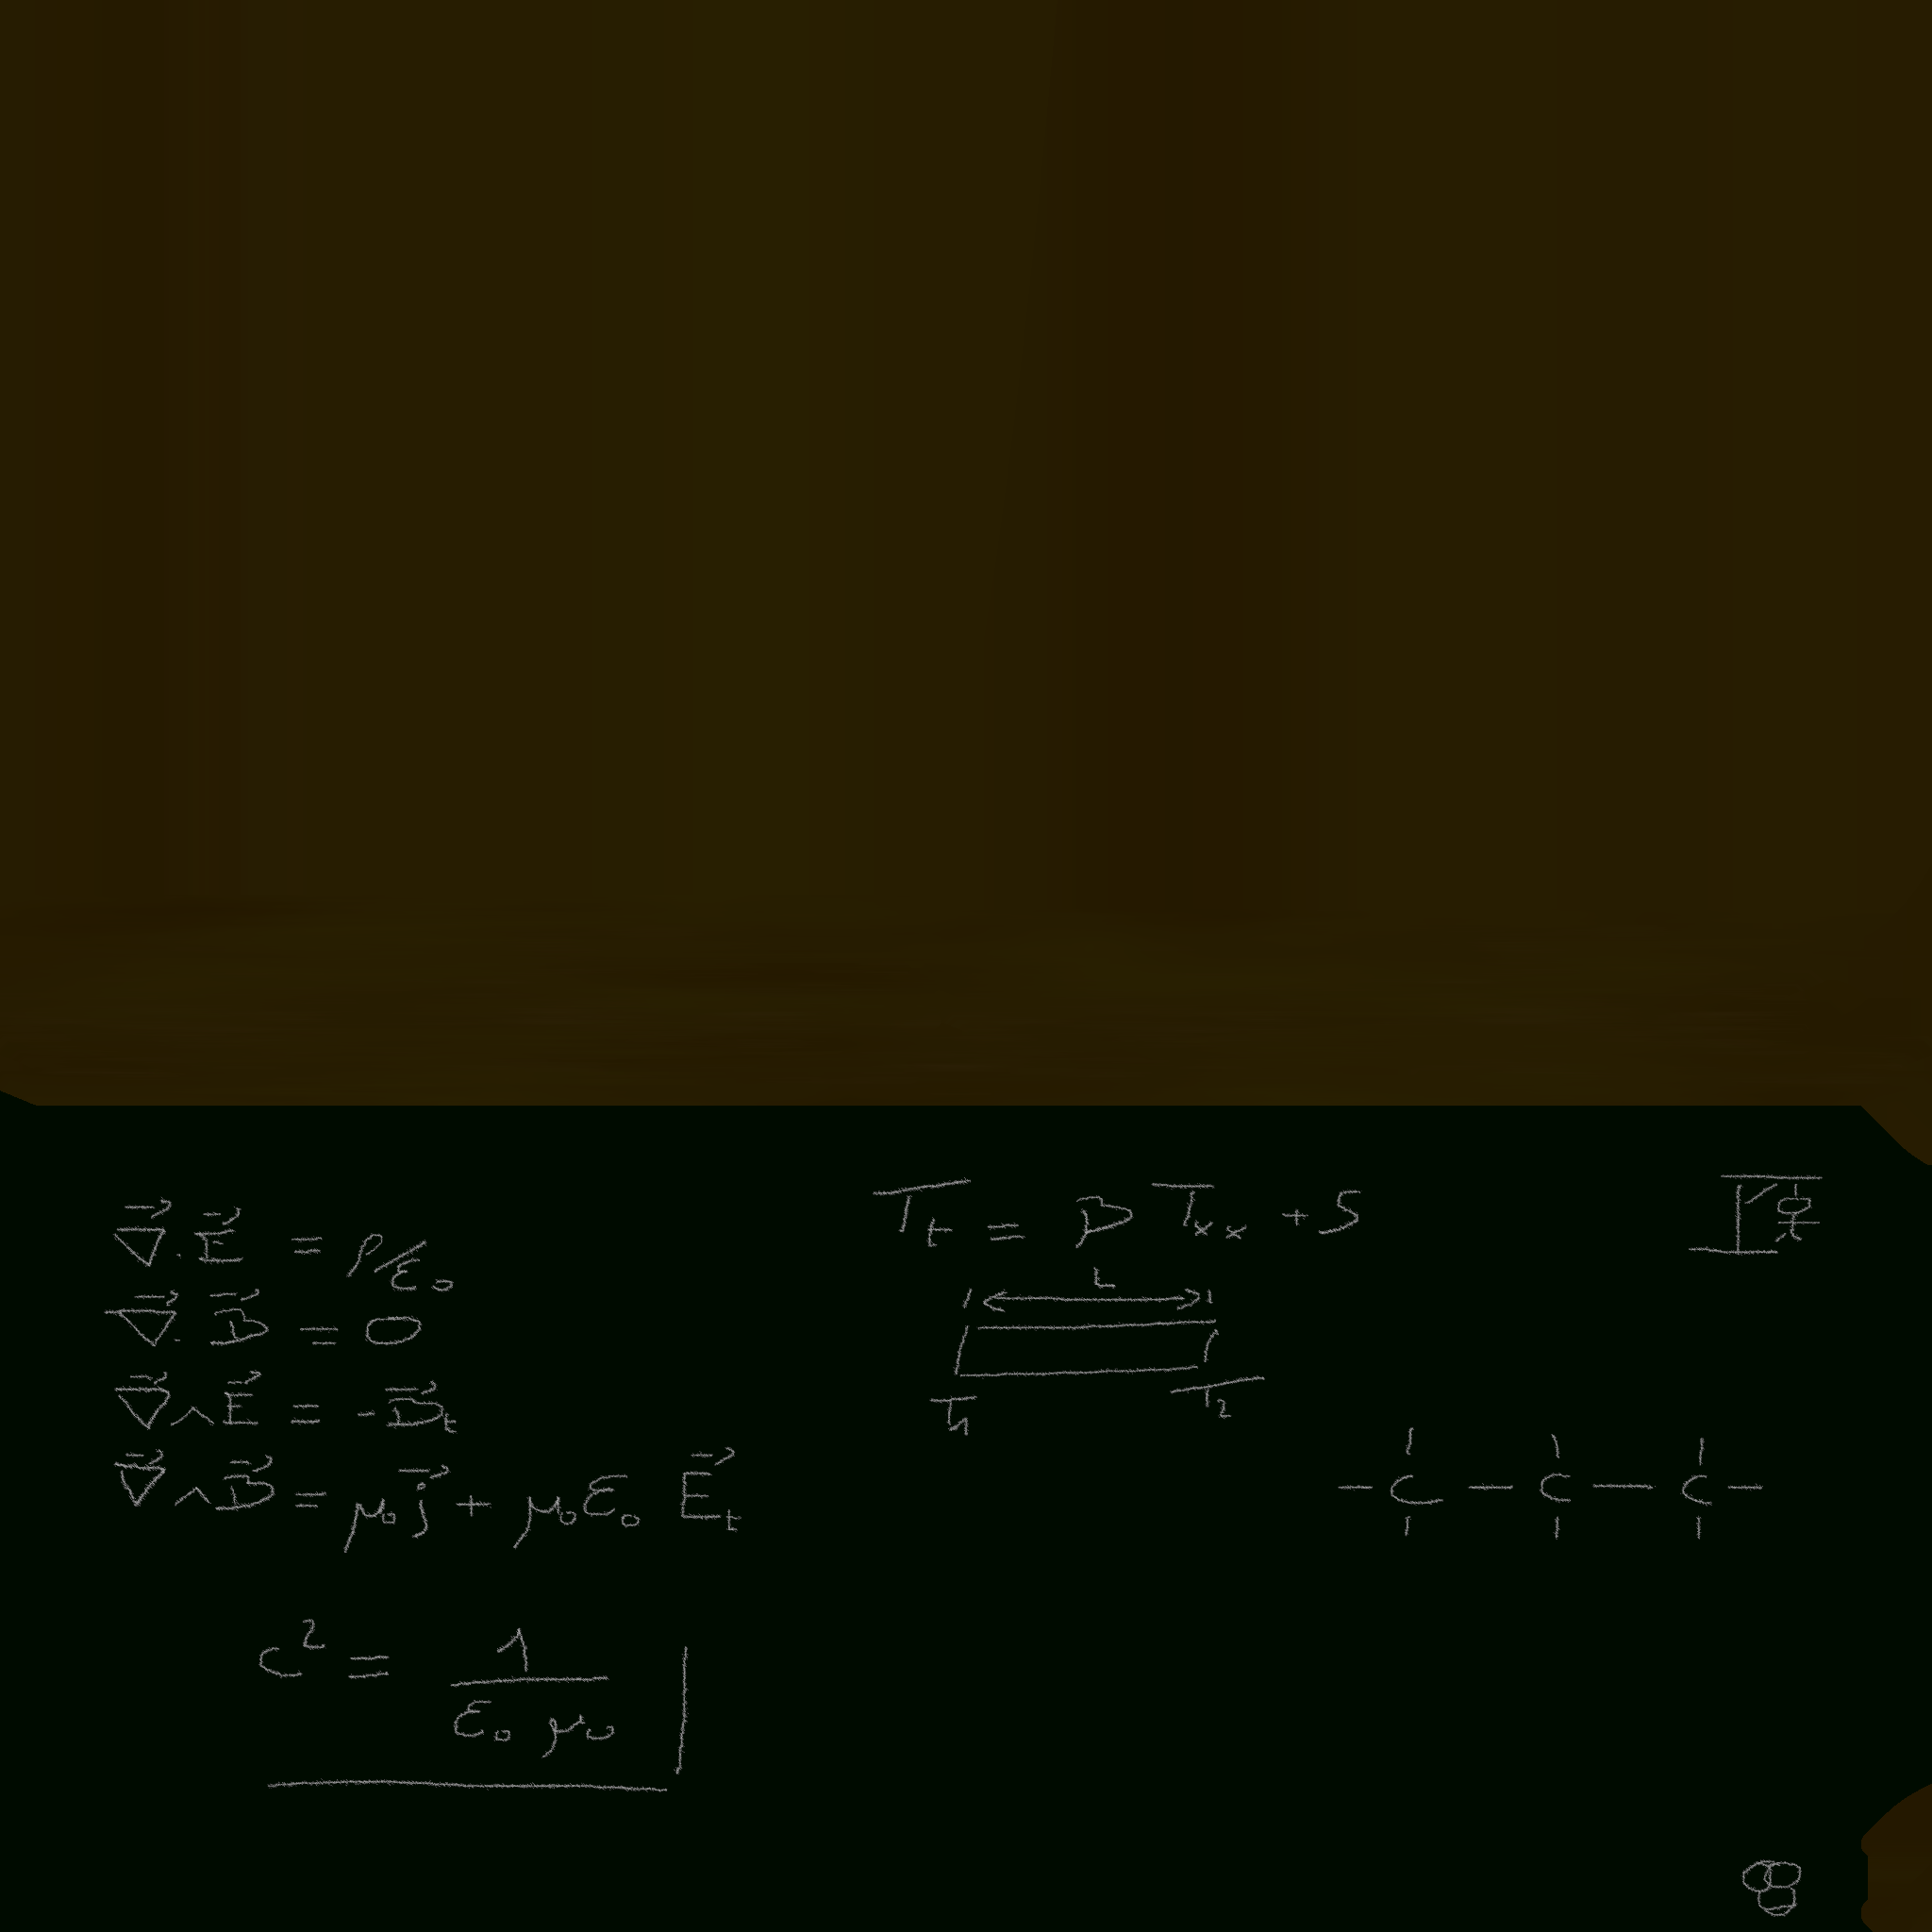 ∇⃗ . E⃗ = ρ/ε₀
∇⃗ . B⃗ = 0
∇⃗ ∧ E⃗ = - B⃗ₜ
∇⃗ ∧ B⃗ = μ₀ j⃗ + μ₀ ε₀ E⃗ₜ
c² = 1 / ε₀ μ₀
Tₜ = D Tₓₓ + S
L
T₁ T₂
- C - C - C -